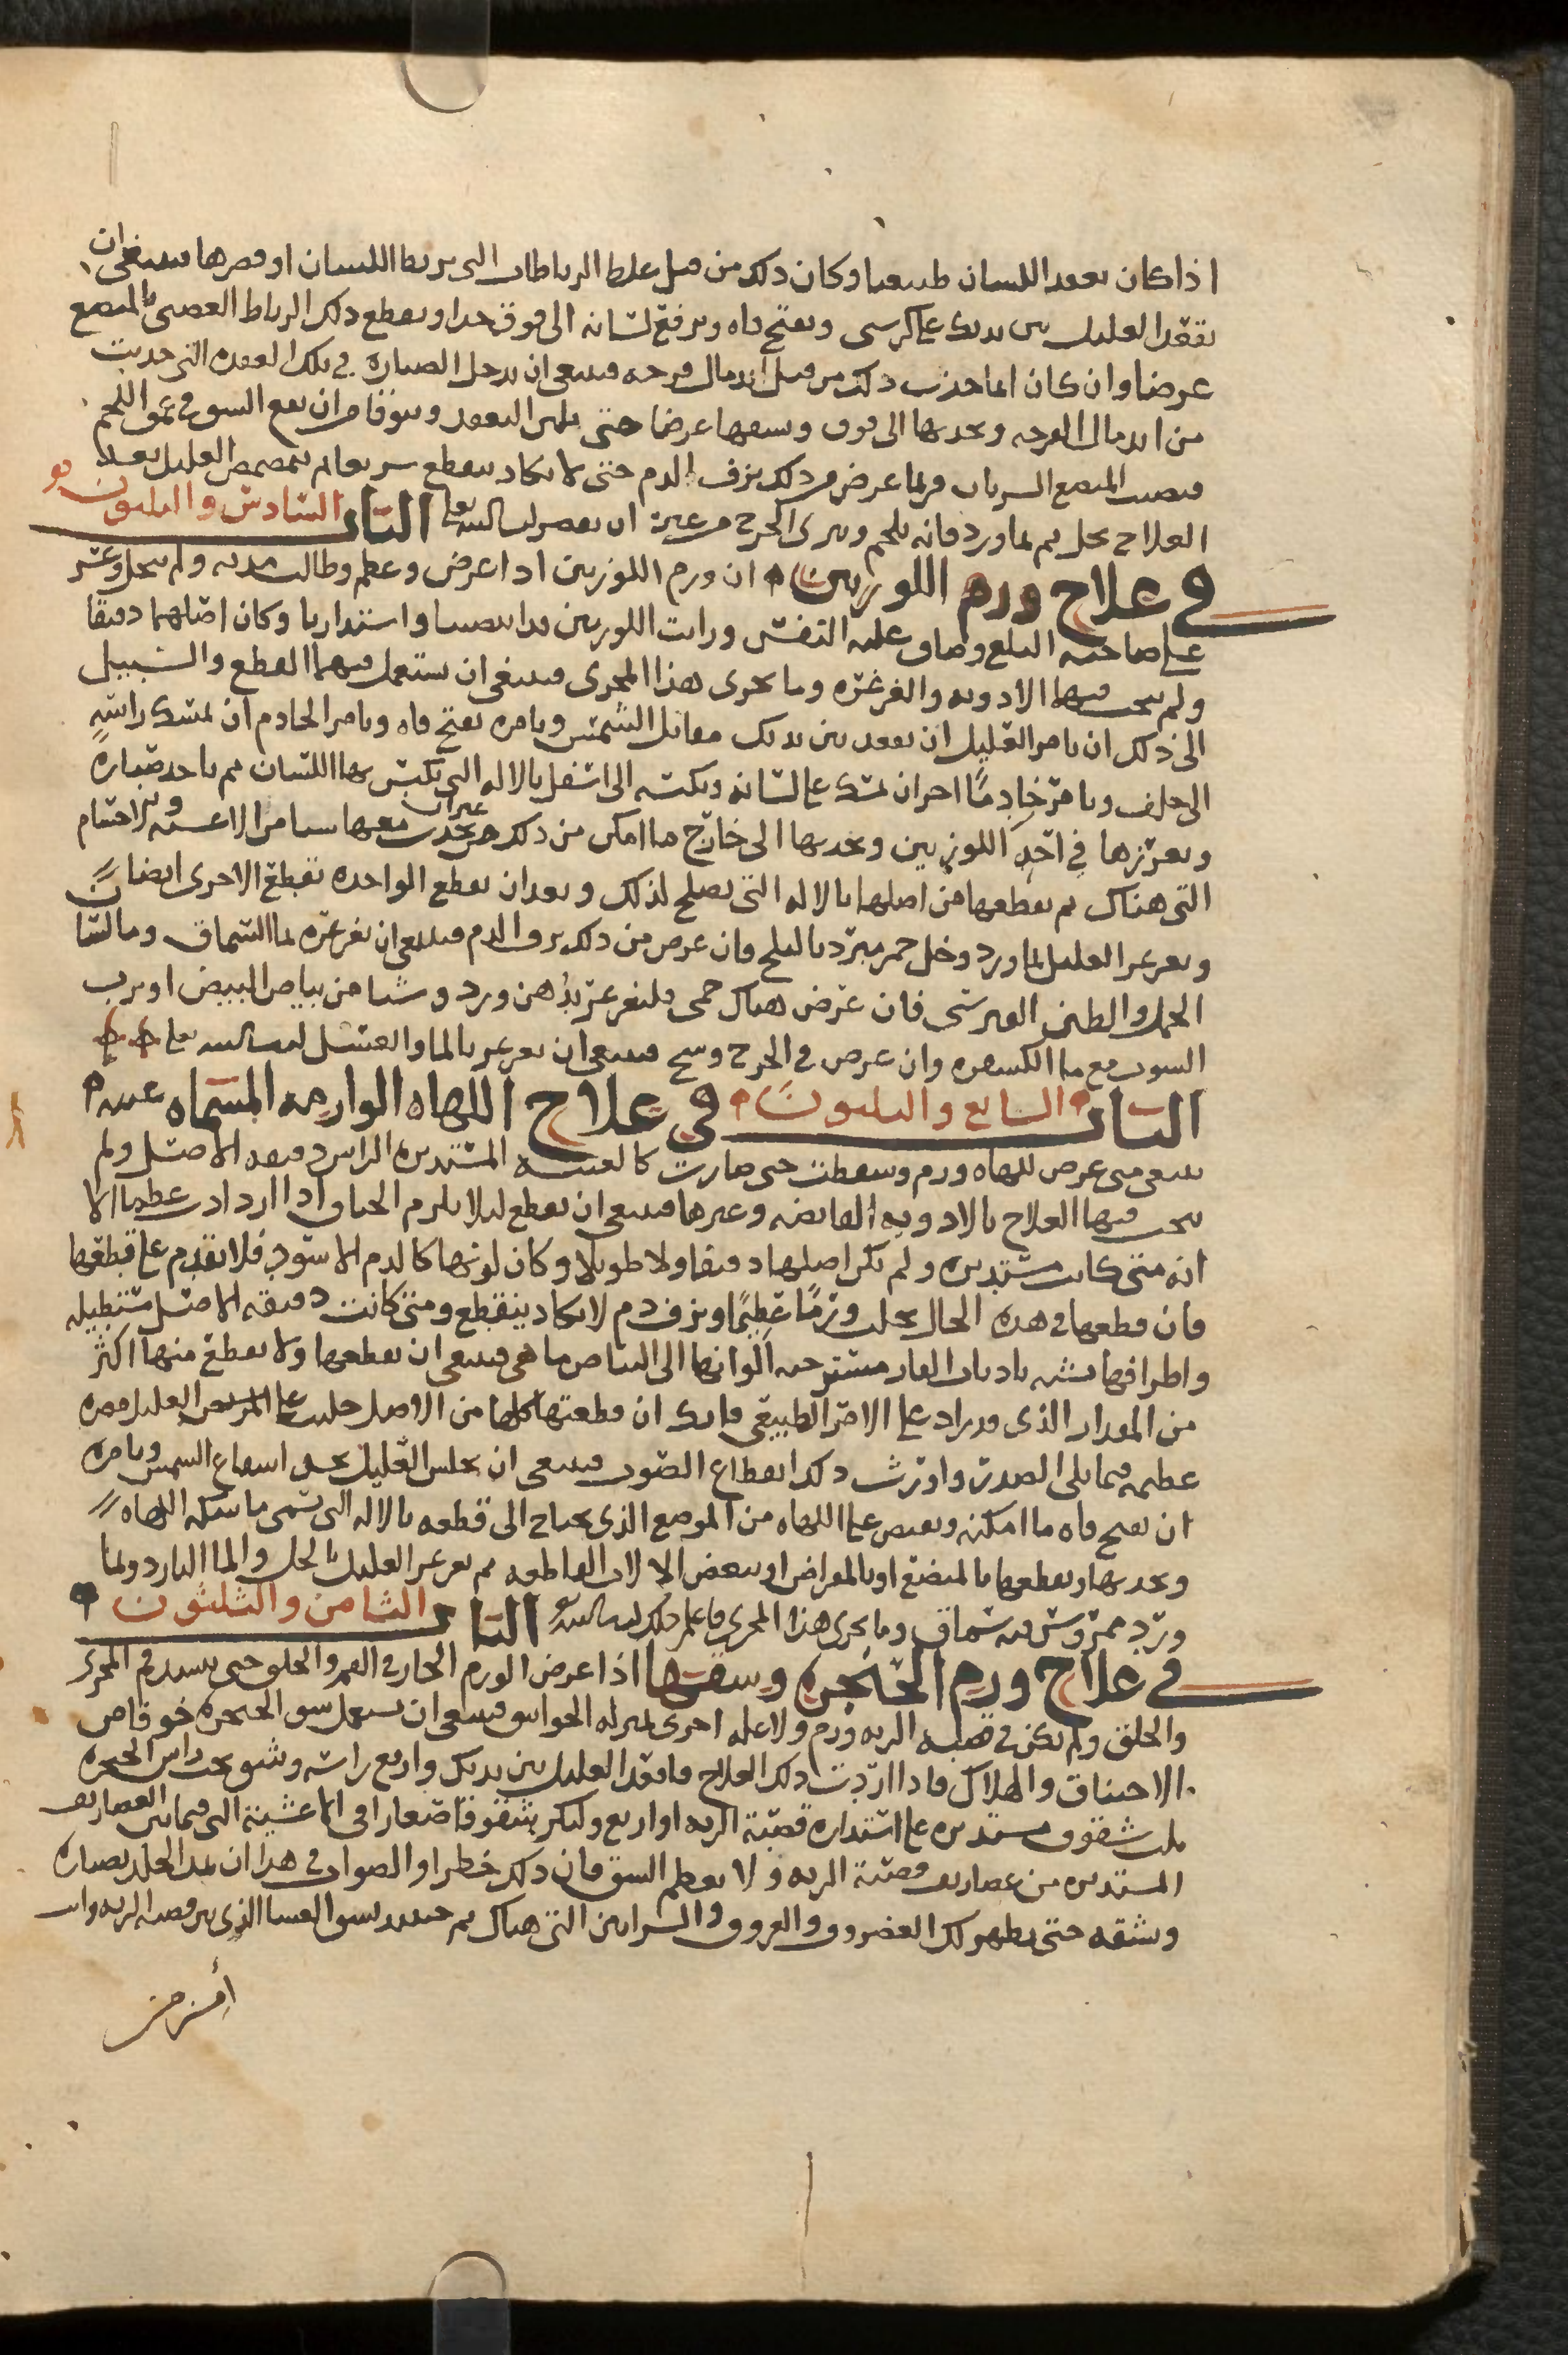 اذا كان تعقد اللسان طبيعيا وكان ذلك من قبل غلظ الرباطات التى تربط اللسان او قصرها فينبغى ان
تقعد العليل بين يديك على كرسى وتفتح فاه وترفع لسانه الى فوق جدا وتقطع ذلك الرباط العصبى بالمبضع
عرضا وان كان انما حدث ذلك من قبل اندمال قرحه فينبغى ان تدخل الصناره فى تلك العقده التى حدثت
من اندمال القرحه وتجذبها الى فوق وتشقها عرضا حتى التعقد وتتوقا من ان تقع الشق فى عمق اللحم
فيصيب المبضع الشريان فربما عرض من ذلك نزف الدم حتى لا يكاد ينقطع سريعا ثم يتمضمض العليل بعد
العلاج بخل ثم بماورد فانه يلحم ويبرى الجرح من غير ان تعصر ان شا الله تعالى الباب السادس والثلثون
فى علاج ورم اللوزتين ان ورم اللوزتين اذا عرض وعظم وطالت مدته ولم ينحل وعسر
على صاحبه البلع وضاق عليه التنفس ورايت اللوزتين قد ابيضتا واستدارتا وكان اصلهما دقيقا
ولم ينجب فيهما الادويه والغرغره وما يجرى هذا المجرى فينبغى ان تستعمل فيهما القطع والسبيل
الى ذلك ان تامر العليل ان يقعد بين يديك مقابل الشمس وتامره بفتح فاه وتامر الخادم ان يمسك راسه
الى خلف وتامر خادمًا اخر ان يمسك على لسانه ويكبسه الى اسفل بالاله التى يكبس بها اللسان ثم تاخذ صناره
وتغرزها فى احد اللوزتين وتجذبها الى خارج ما امكن من ذلك من غير ان تجذب معها شيا من الاغشيه والاجسام
التى هناك ثم تقطعها من اصلها بالاله التى تصلح لذلك وبعد ان تقطع الواحده تقطع الاخرى ايضا
وتغرغر العليل بماورد وخل خمر مبرد بالثلج فان عرض من ذلك نزف الدم فينبغى ان تغرغره بما السماق وما لسان
الحمل والطين القبرسى فان عرض هناك حمى فليغرغر بدهن ورد وشيا من بياض البيض او برب
التوت مع ما الكسفره وان عرض فى الجرح وسخ فينبغى ان يغرغر بالما والعسل ان شا الله تعالى
الباب السابع والثلثون فى علاج اللهاه الوارمه المسماه عنبه
ينبغى متى عرض للهاه ورم وسقطت حتى صارت كالعنبه المستديره الراس دقيقه الاصل ولم
ينجب فيها العلاج بالادويه القابضه وغيرها فينبغى ان تقطع ليلا يلزم الخناق اذا ازدادت عظما الا
انه متى كانت مستديره ولم يكن اصلها دقيقا ولا طويلا وكان لونها كالدم الاسود فلا تقدم على قطعها
فان قطعها فى هذه الحال يجلب ورمًا عظيمًا ونزف دم لا يكاد ينقطع ومتى كانت دقيقه الاصل مستطيله
واطرافها تشبه باذناب الفار مسترخيه الوانها الى البياض ما هى فينبغى ان تقطعها ولا تقطع منها اكثر
من المقدار الذى قد زاد على الامر الطبيعى فانك ان قطعتها كلها من الاصل جلبت على المريض العليل مضره
عظيمه فيما يلى الصدر واورث ذلك انقطاع الصوت فينبغى ان يجلس العليل بحذا شعاع الشمس وتامره
ان يفتح فاه ما امكنه وتقبض على اللهاه من الموضع الذى يحتاج الى قطعه بالاله التى تسمى ماسكه اللهاه
وتجذبها وتقطعها بالمبضع او بالمقراض او ببعض الالات القاطعه ثم تغرغر العليل بالخل والما البارد وبما
ورد ممروس فيه سماق وما يجرى هذا المجرى فاعلم ذلك ان شا الله تعالى الباب الثامن والثلثون
فى علاج ورم الحنجره وشقها اذا عرض الورم الحار فى الفم والحلق حتى ينسد فم المجرى
والحلق ولم يكن فى قصبه الريه ورم ولا عله اخرى بمنزله الخوانيق فينبغى ان تستعمل شق الحنجره خوفا من
الاختناق والهلاك فاذا اردت ذلك العلاج فاقعد العليل بين يديك وارفع راسه وشق تحت راس الحنجره
ثلث شقوق مستديره على استداره قصبة الريه او اربع وليكن شقوقا صغارا فى الاغشية التى فيما بين الغضاريف
المستديره من غضاريف قصبة الريه ولا تعظم الشق فان ذلك خطر او الصواب فى هذا ان تمد الجلد بصناره
وتشقه حتى يظهر لك الغضروف والعروق والشرايين التى هناك ثم حينيذ تشق الغشا الذى بين قصبه الريه وان